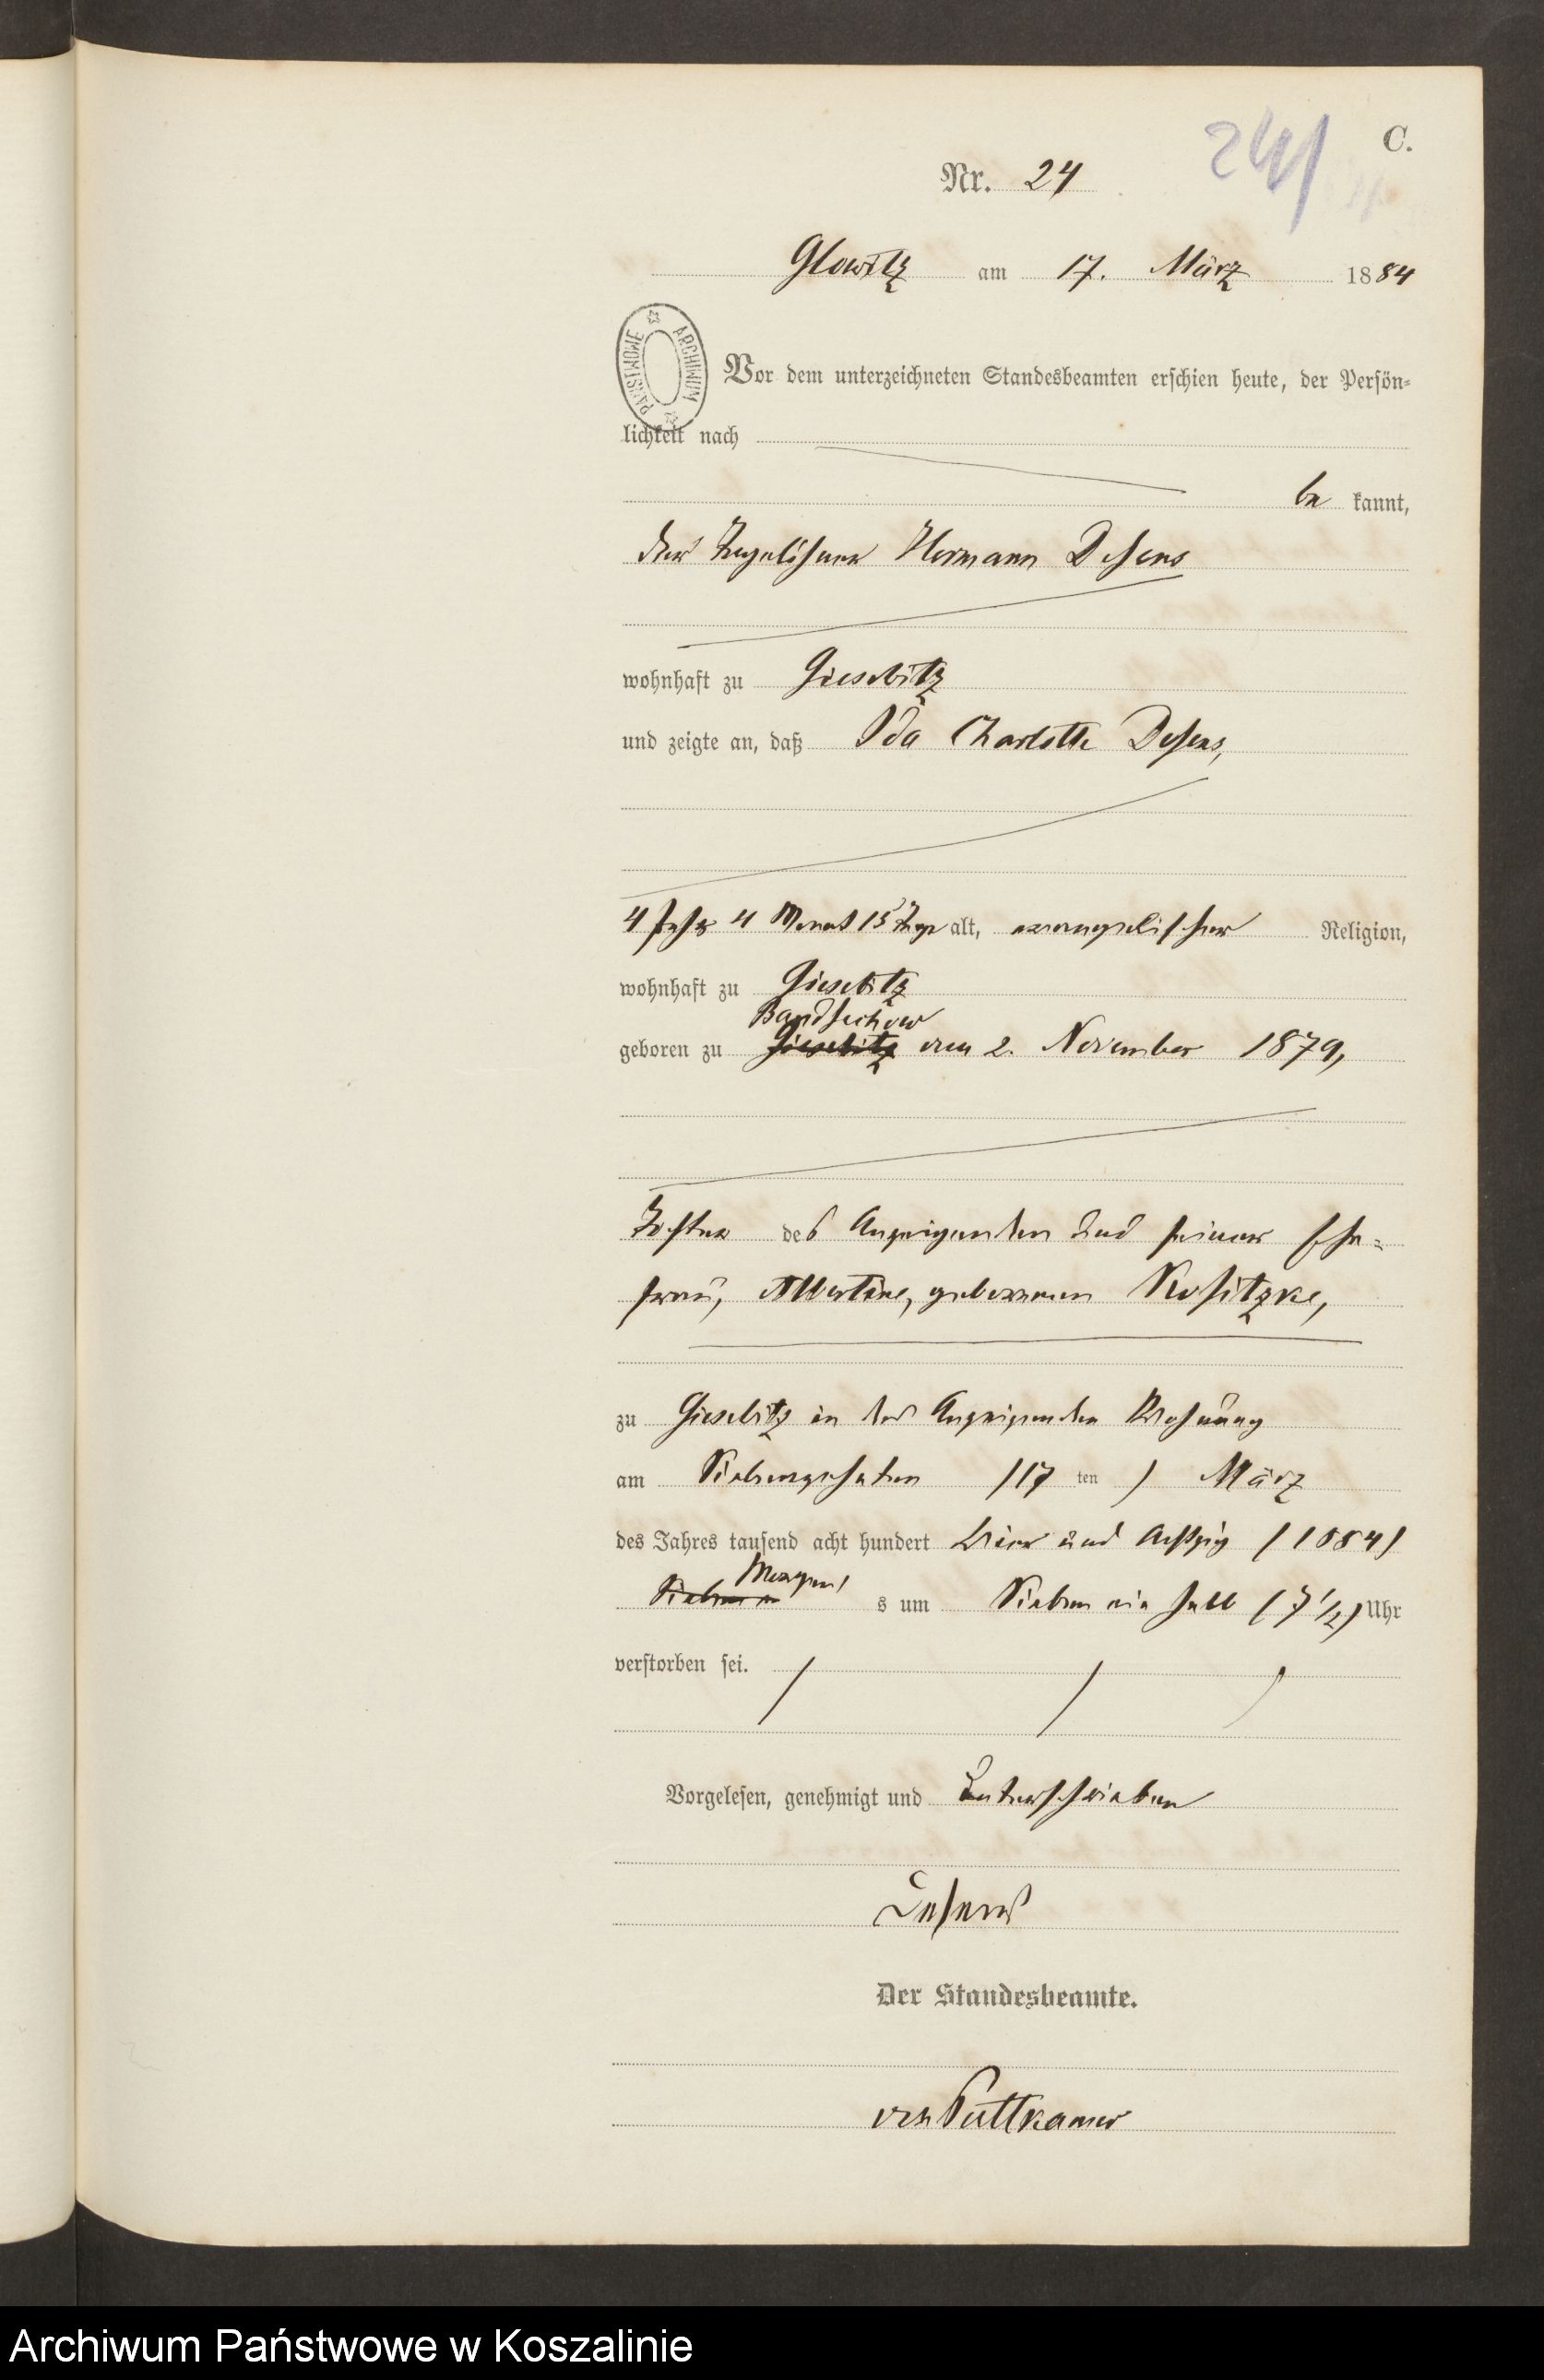 C.
24
Nr. 24
Glowitz am 17. März 1884
PAŃSTWOWE ARCHIWUM
Vor dem unterzeichneten Standesbeamten erschien heute, der Persön-
lichkeit nach
be kannt,
der Tagelöhner Hermann Desens
wohnhaft zu Giesebitz
und zeigte an, daß Ida Charlotte Desens,
4 Jahr 4 Monat 15 Tage alt, evangelischer Religion,
wohnhaft zu Giesebitz
Bandsechow
geboren zu Giesebitz am 2. November 1879,
Tochter des Anzeigenden und seiner Ehe-
frau, Albertine, geborenen Kositzke,
zu Giesebitz in des Anzeigenden Wohnung
am Siebenzehnten (17 ten ) März
des Jahres tausend acht hundert vier und Achtzig (1884)
Morgen
Sieben s um Sieben ein halb (7 1/2) Uhr
verstorben sei.
Vorgelesen, genehmigt und Unterschrieben
Desens
Der Standesbeamte.
von Puttkamer
Archiwum Państwowe w Koszalinie